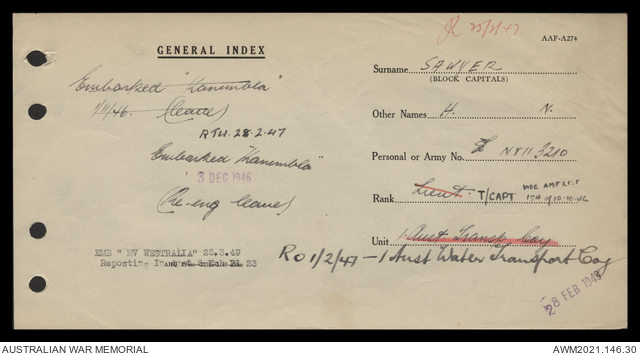 GENERAL INDEX
Embarked "Kanimbla"
1/11/46. (leave)
RTU. 28.2.47
Embarked "Kanimbla"
3 DEC 1946
(Re-eng leave)
EMB " MV WESTRALIA" 25.3.49
Reposting In
23
25/2/47
AAF-A274
Surname SAWYER
(BLOCK CAPITALS)
Other Names H. N.
Personal or Army No. NX113210
Rank Lieut. T/CAPT
Unit 1 Aust. Transp Coy
RO 1/2/47 - 1 Aust Water Transport Coy
28 FEB 1949
AUSTRALIAN WAR MEMORIAL
AWM2021.146.30